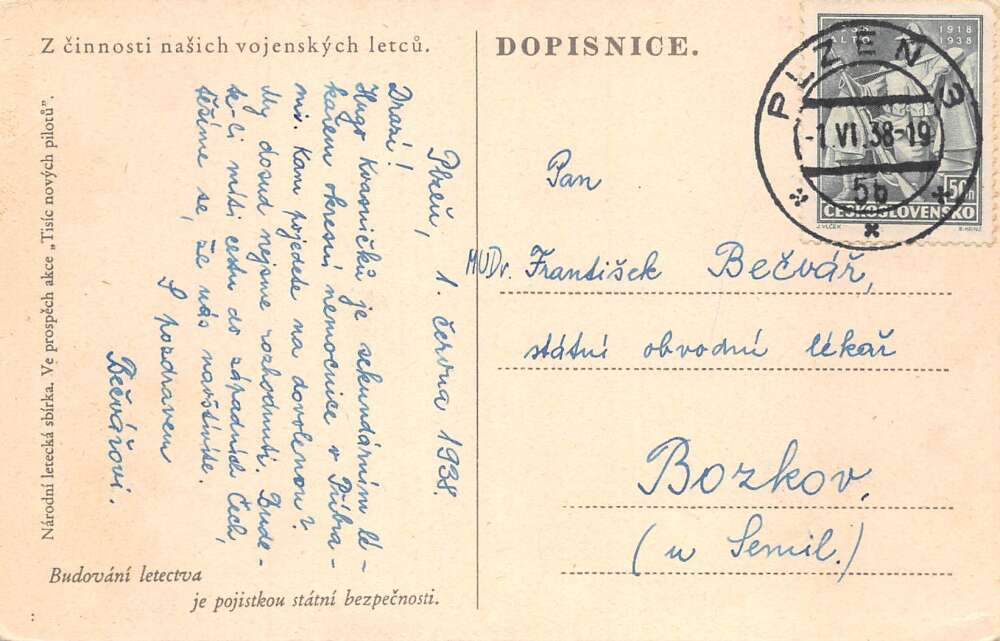 Z činnosti našich vojenských letců.
DOPISNICE.
Národní letecká sbírka. Ve prospěch akce „Tisíc nových pilotů".
Plzeň, 1. června 1938.
Drazí!
Hugo Kvasničků je sekundárním lé-
kařem okresní nemocnice v Příbra-
mi. Kam pojedete na dovolenou?
My dosud nejsme rozhodnuti. Bude-
te-li míti cestu do západních Čech,
těšíme se, že nás navštívíte.
S pozdravem
Bečvářovi.
Budování letectva
je pojistkou státní bezpečnosti.
1918
1938
50h
ČESKOSLOVENSKO
J. VLČEK
PLZEŇ 3
-1.VI.38-19
5b
Pan
MUDr. František Bečvář,
státní obvodní lékař
Bozkov,
(u Semil.)